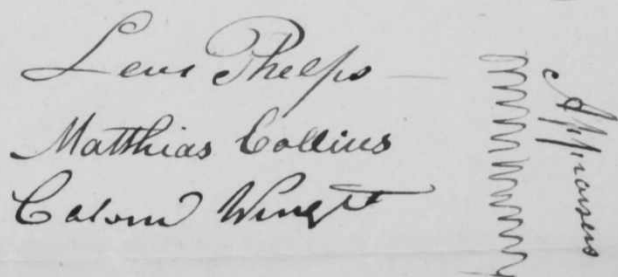 Levi Phelps
Matthias Collins
Calvin Wright
Appraisers